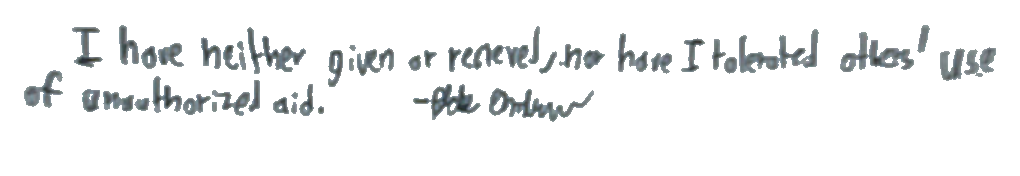 I have neither given or recieved, nor have I tolerated others' use
of unauthorized aid. -